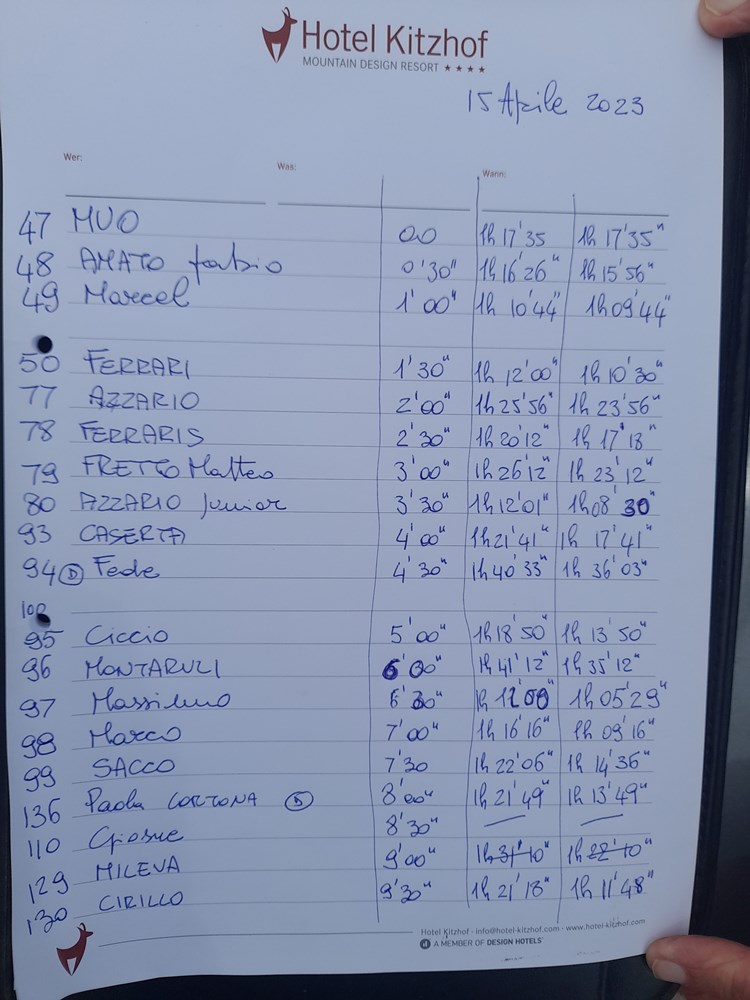 Hotel Kitzhof
MOUNTAIN DESIGN RESORT ★★★★
15 Aprile 2023
Wer: Was: Wann:
47 MUO 0.0 1h 17'35 1h 17'35"
48 AMATO fabio 0'30" 1h 16'26" 1h 15'56"
49 Marcel 1'00" 1h 10'44" 1h 09'44"
50 FERRARI 1'30" 1h 12'00" 1h 10'30"
77 AZZARIO 2'00" 1h 25'56" 1h 23'56"
78 FERRARIS 2'30" 1h 20'12" 1h 17'13"
79 FRETTO Matteo 3'00" 1h 26'12" 1h 23'12"
80 AZZARIO Junior 3'30" 1h 12'01" 1h 08'30"
93 CASERTA 4'00" 1h 21'41" 1h 17'41"
94 D Fede 4'30" 1h 40'33" 1h 36'03"
95 Ciccio 5'00" 1h 18'50" 1h 13'50"
96 MONTARULI 6'00" 1h 41'12" 1h 35'12"
97 Massimo 6'30" 1h 05'29"
98 Marco 7'00" 1h 16'16" 1h 09'16"
99 SACCO 7'30 1h 22'06" 1h 14'36"
136 Paola CORTONA D 8'00" 1h 21'49" 1h 13'49"
110 Giosue 8'30"
129 MILEVA 9'00" 1h 31'10" 1h 22'10"
130 CIRILLO 9'30" 1h 21'18" 1h 11'48"
Hotel Kitzhof · info@hotel-kitzhof.com · www.hotel-kitzhof.com
A MEMBER OF DESIGN HOTELS™